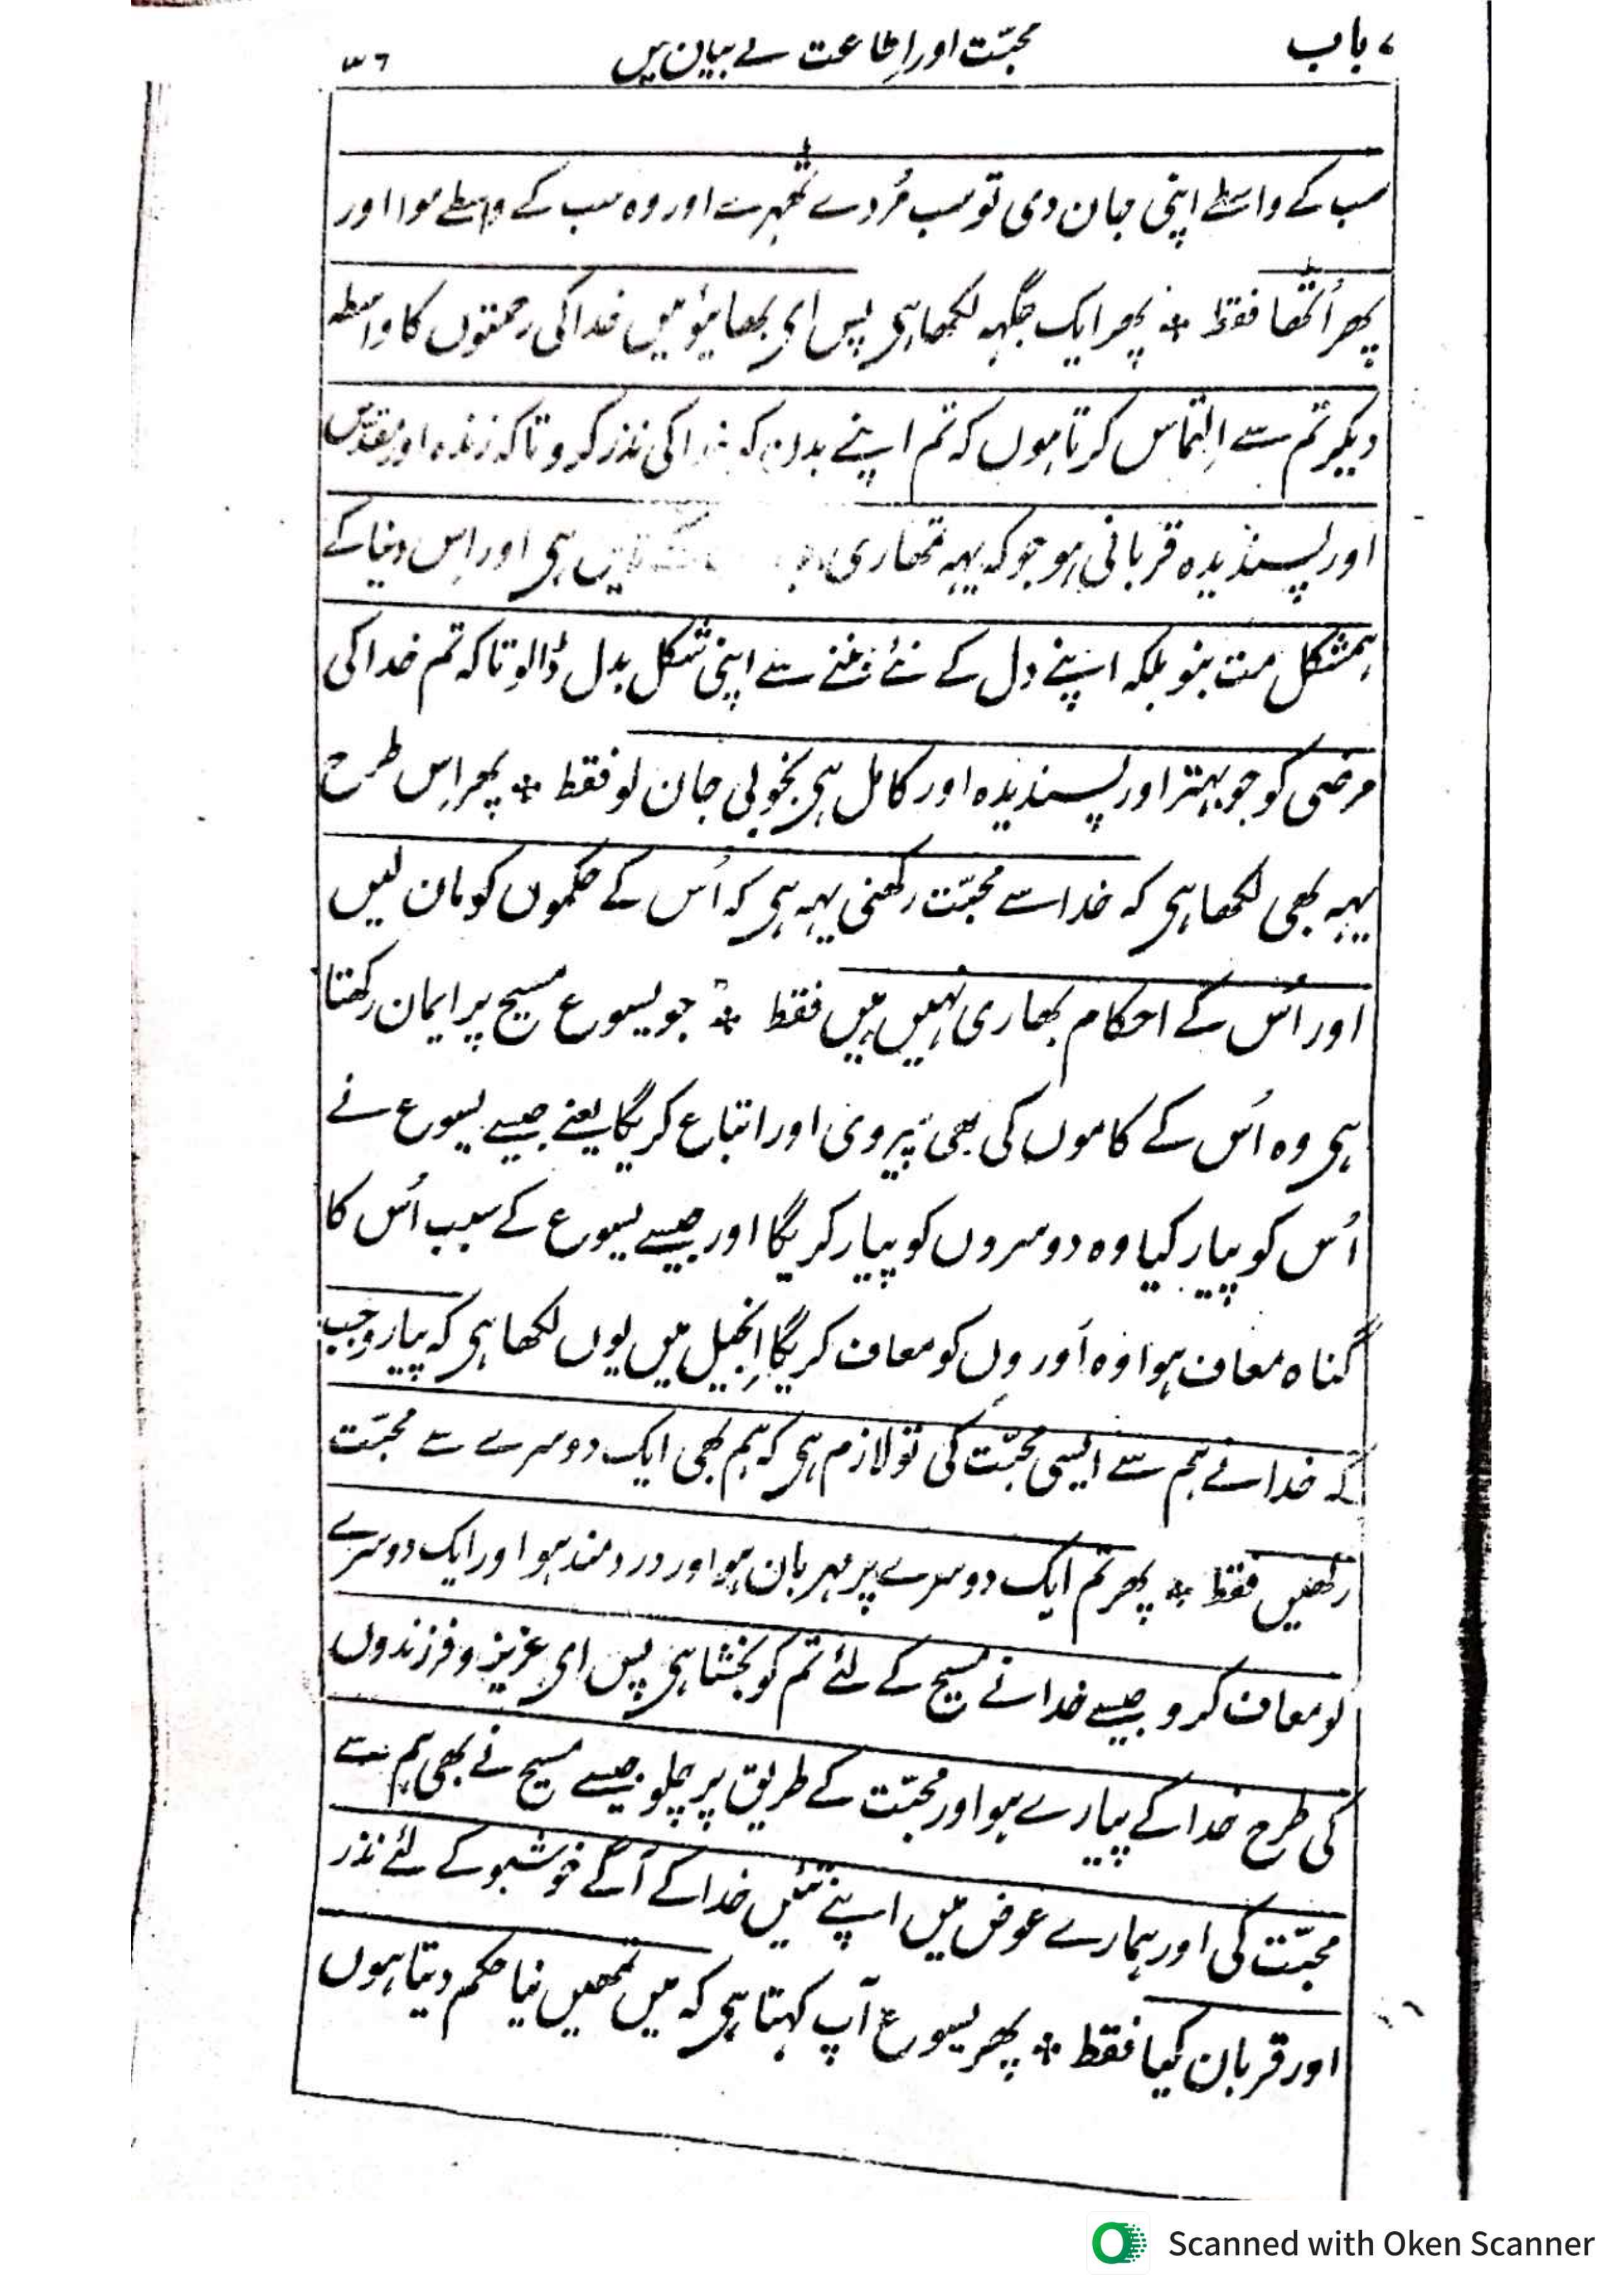 ۷ باب محبّت اور اِطاعت کے بیان میں ۳۶
سب کے واسطے اپنی جان دی تو سب مُردے ٹھہرے اور وہ سب کے واسطے موا اور
پھر اُٹھا فقط * پھر ایک جگہہ لکھا ہی پس ای بھائیو میں خدا کی رحمتوں کا واسطہ
دیکر تم سے اِلتماس کرتا ہوں کہ تم اپنے بدن کو خدا کی نذر کرو تاکہ زندہ اور مقدّس
اور پسندیدہ قربانی ہو جو کہ یہہ تمھاری ہی اور اِس دنیا کے
ہمشکل مت بنو بلکہ اپنے دل کے نئے بننے سے اپنی شکل بدل ڈالو تاکہ تم خدا کی
مرضی کو جو بہتر اور پسندیدہ اور کامل ہی بخوبی جان لو فقط * پھر اِس طرح
یہہ بھی لکھا ہی کہ خدا سے محبّت رکھنی یہہ ہی کہ اُس کے حکموں کو مان لیں
اور اُس کے احکام بھاری نہیں ہیں فقط * جو یسوع مسیح پر ایمان رکھتا
ہی وہ اُس کے کاموں کی بھی پیروی اور اتباع کریگا یعنے جیسے یسوع نے
اُس کو پیار کیا وہ دوسروں کو پیار کریگا اور جیسے یسوع کے سبب اُس کا
گناہ معاف ہوا وہ اَوروں کو معاف کریگا اِنجیل میں یوں لکھا ہی کہ پیارو جب
کہ خدا نے ہم سے ایسی محبّت کی تو لازم ہی کہ ہم بھی ایک دوسرے سے محبّت
رکھیں فقط * پھر تم ایک دوسرے پر مہربان ہو اور دردمند ہو اور ایک دوسرے
کو معاف کرو جیسے خدا نے مسیح کے لئے تم کو بخشا ہی پس ای عزیز و فرزندوں
کی طرح خدا کے پیارے ہو اور محبّت کے طریق پر چلو جیسے مسیح نے بھی ہم سے
محبّت کی اور ہمارے عوض میں اپنے تئیں خدا کے آگے خوشبو کے لئے نذر
اور قربان کیا فقط * پھر یسوع آپ کہتا ہی کہ میں تمھیں نیا حکم دیتا ہوں
Scanned with Oken Scanner